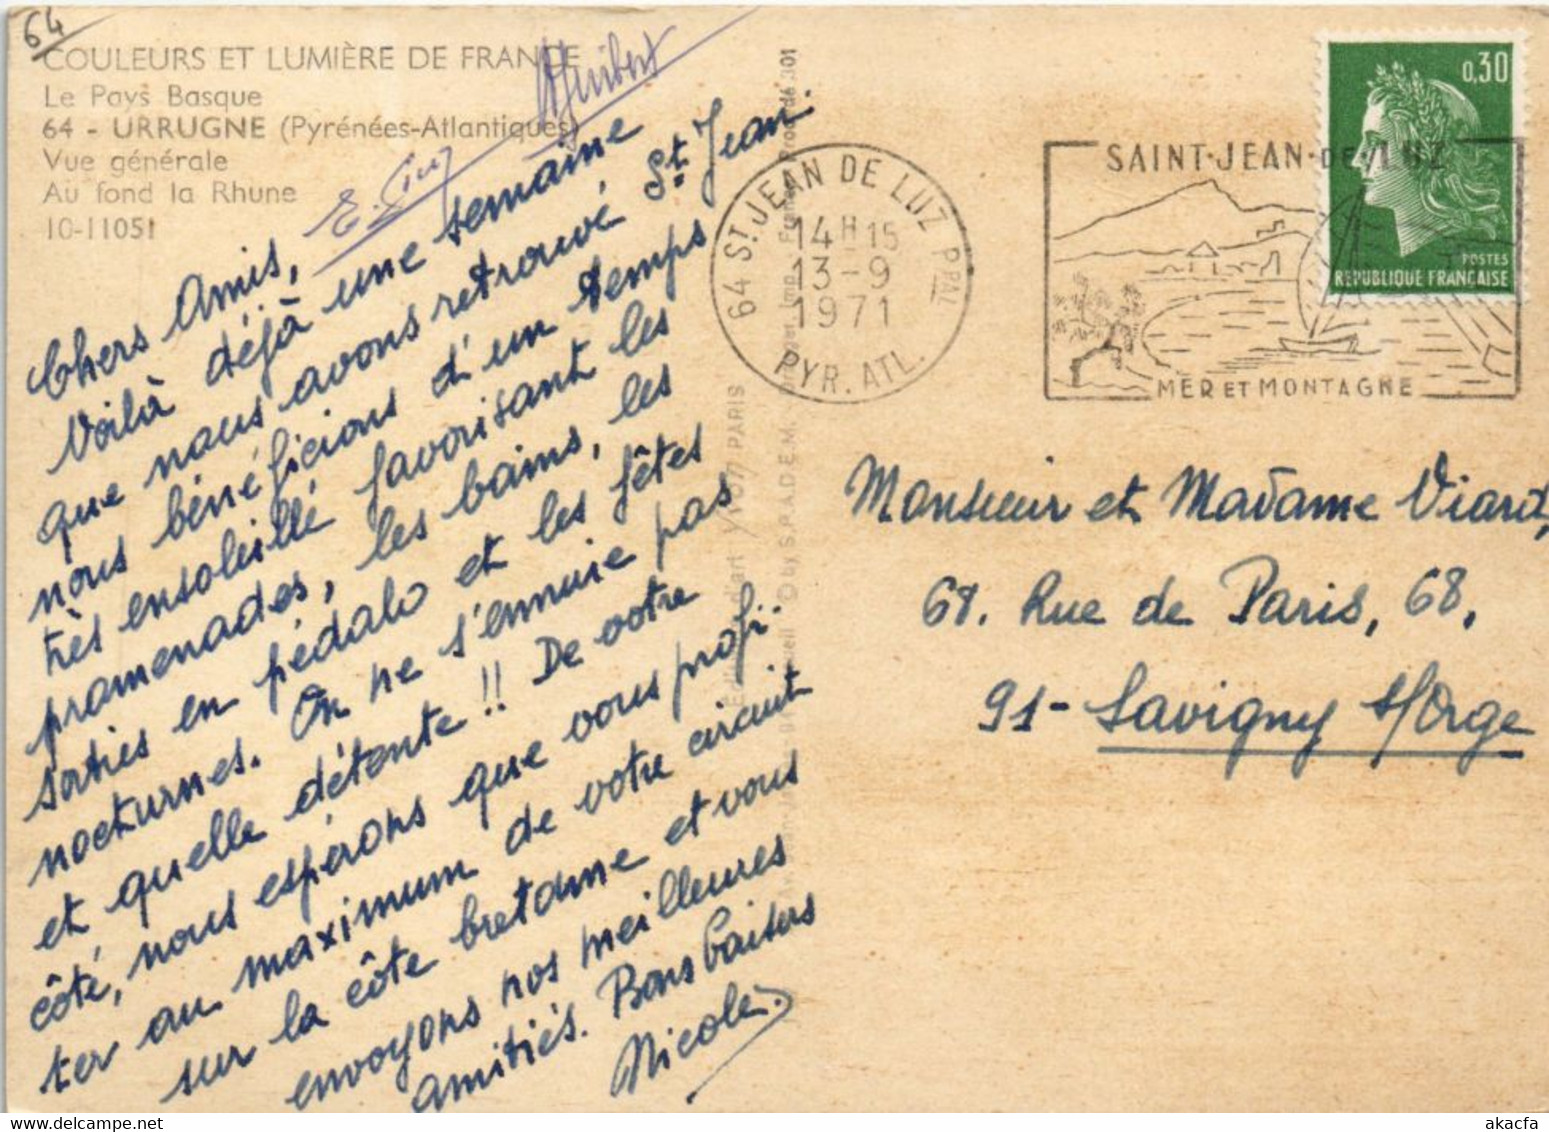 64
COULEURS ET LUMIÈRE DE FRANCE
Le Pays Basque
64 - URRUGNE (Pyrénées-Atlantiques)
Vue générale
Au fond la Rhune
10-11051
Chers Amis,
Voilà déjà une semaine
que nous avons retrouvé St Jean.
nous bénéficions d'un temps
très ensoleillé favorisant les
promenades, les bains, les
sorties en pédalo et les fêtes
nocturnes. On ne s'ennuie pas
et quelle détente !! De votre
côté, nous espérons que vous profi-
ter au maximum de votre circuit
sur la côte bretonne et vous
envoyons nos meilleures
amitiés. Bons baisers
Nicole.
Guibert
64 ST JEAN DE LUZ PPAL
14H15
13-9
1971
PYR. ATL.
SAINT-JEAN-DE-LUZ
MER ET MONTAGNE
0,30
POSTES
REPUBLIQUE FRANÇAISE
Monsieur et Madame Viard,
68. Rue de Paris, 68,
91- Savigny s/Orge
yvon PARIS
by S.P.A.D.E.M.
akacfa